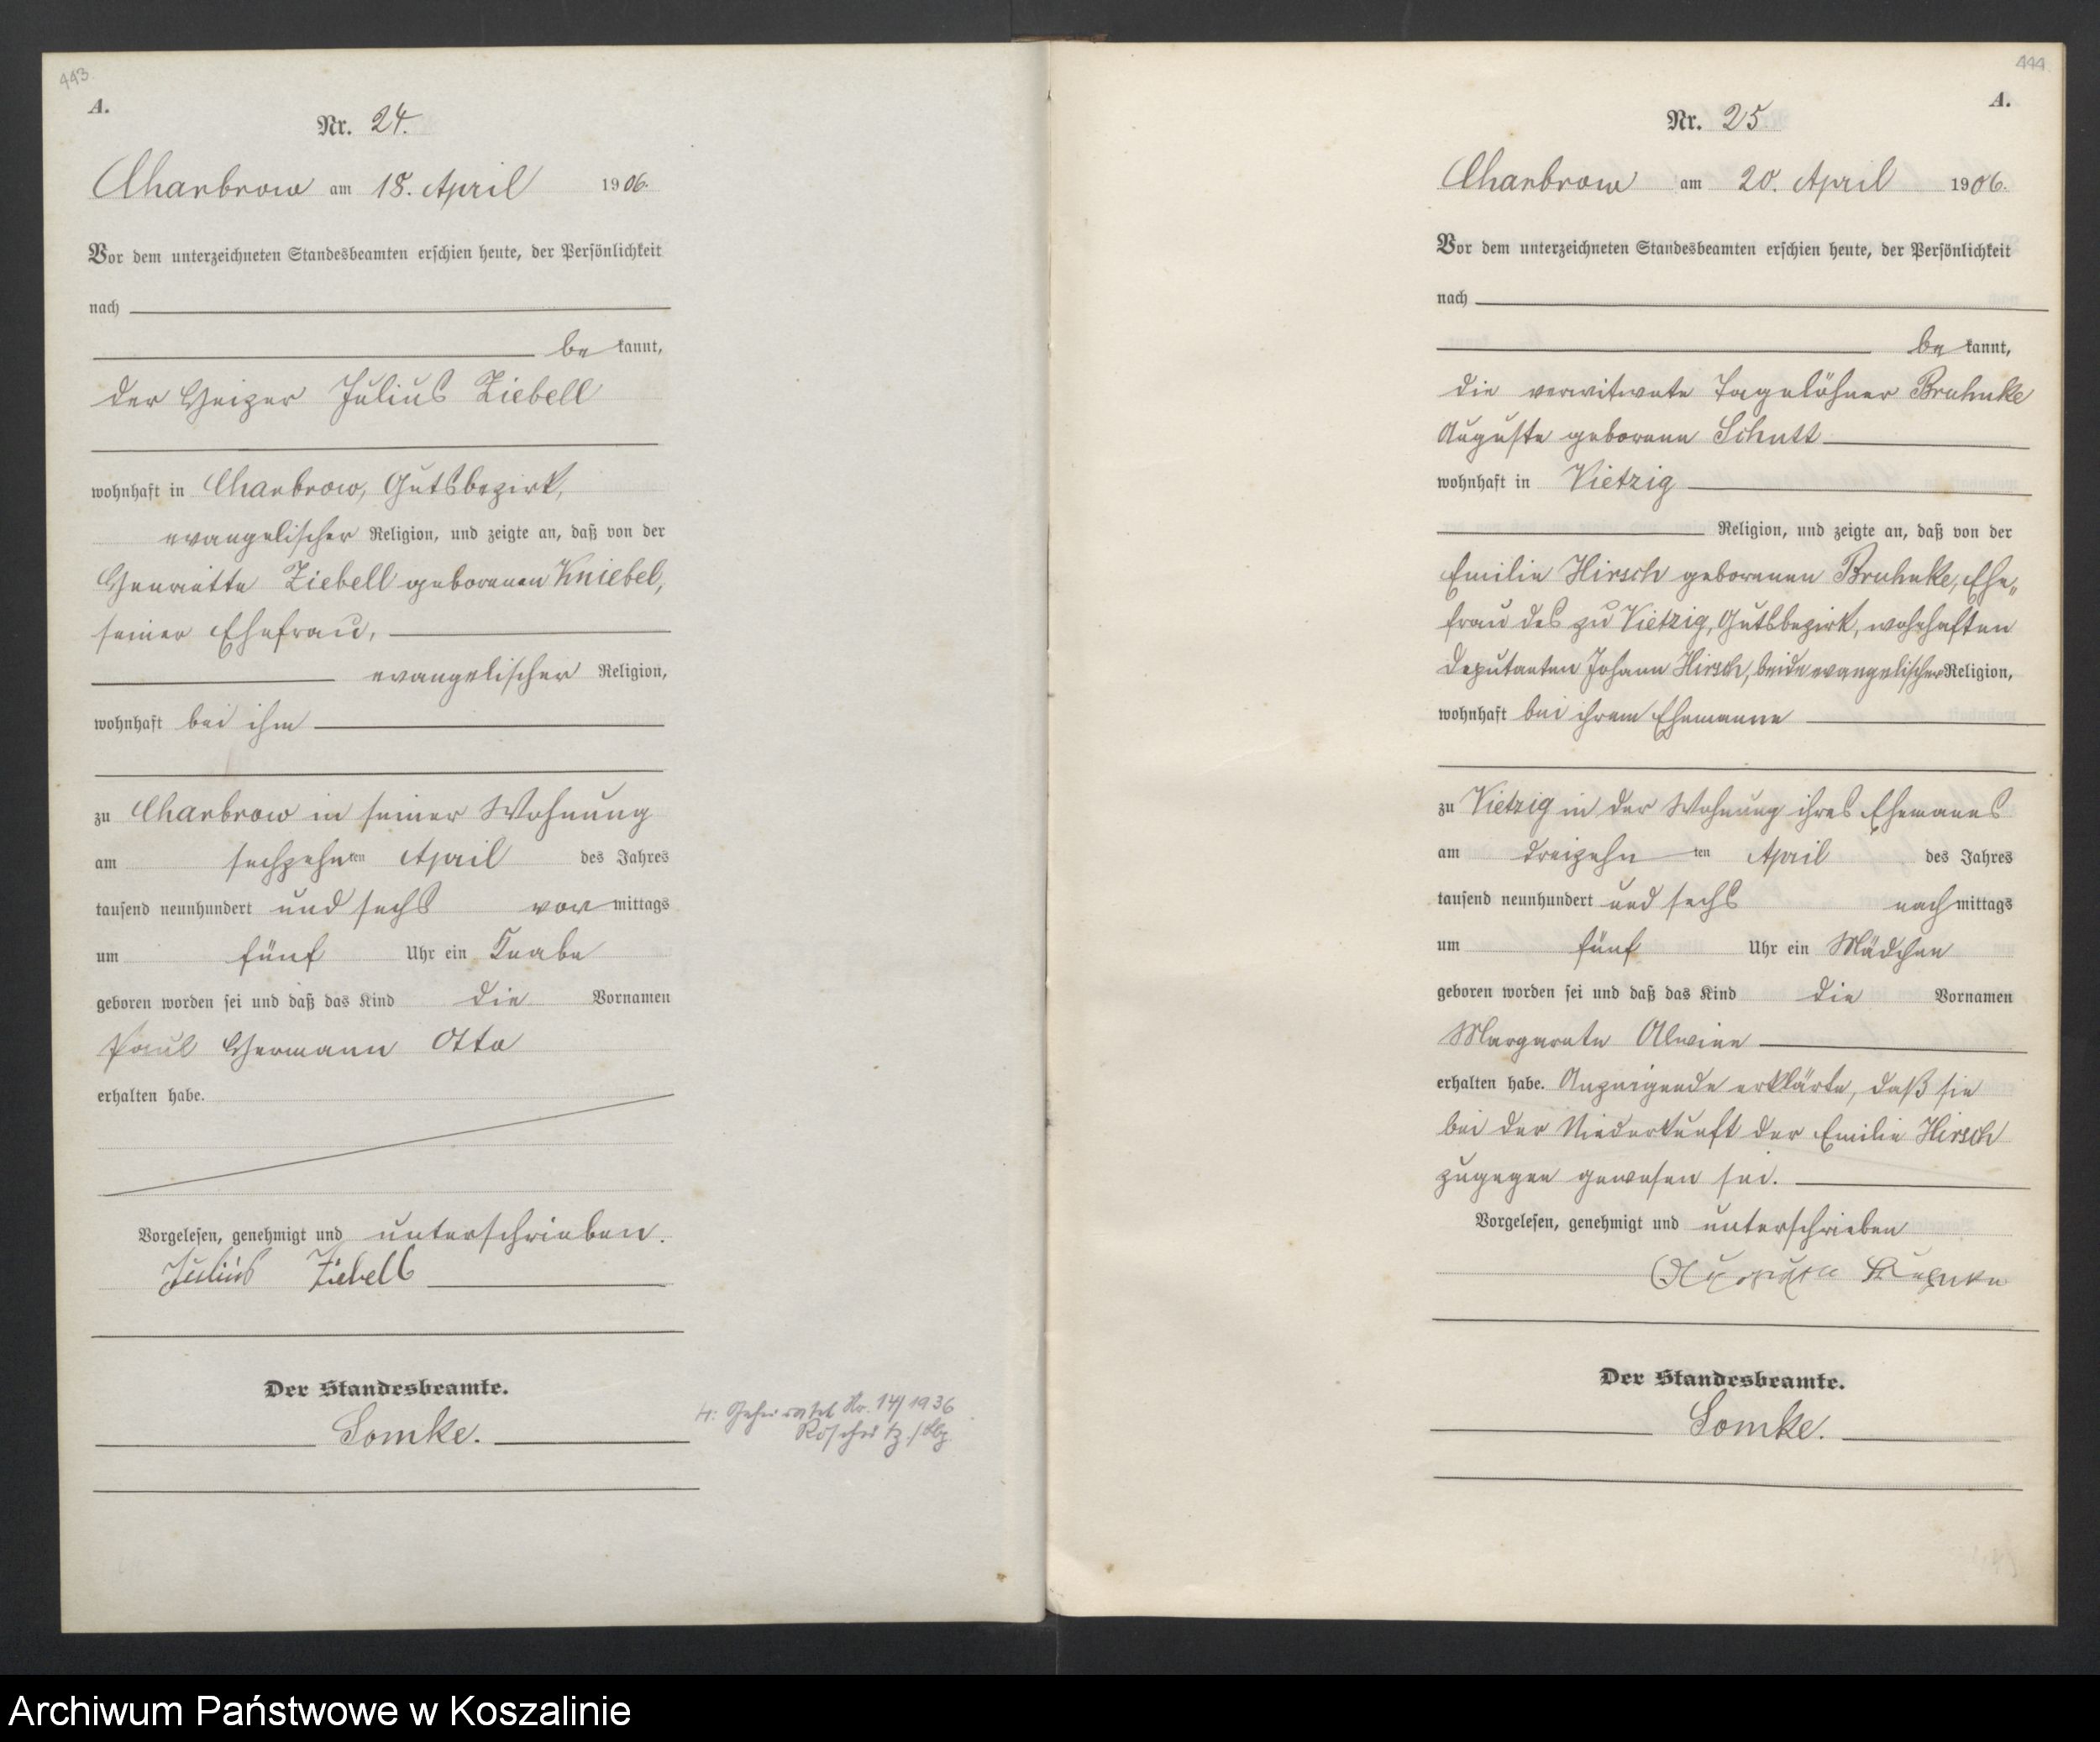 443
A.
Nr. 24.
Charbrow am 18. April 1906.
Vor dem unterzeichneten Standesbeamten erschien heute, der Persönlichkeit
nach
be kannt,
der Heizer Julius Ziebell
wohnhaft in Charbrow, Gutsbezirk,
evangelischer Religion, und zeigte an, daß von der
Henriette Ziebell geborenen Kniebel,
seiner Ehefrau,
evangelischer Religion,
wohnhaft bei ihm
zu Charbrow in seiner Wohnung
am sechzehnten April des Jahres
tausend neunhundert und sechs vormittags
um fünf Uhr ein Knabe
geboren worden sei und daß das Kind die Vornamen
Paul Hermann Otto
erhalten habe.
Vorgelesen, genehmigt und unterschrieben.
Julius Ziebell
Der Standesbeamte.
Somke.
Geheiratet Nr. 14/1936
444
A.
Nr. 25
Charbrow am 20. April 1906.
Vor dem unterzeichneten Standesbeamten erschien heute, der Persönlichkeit
nach
be kannt,
die verwitwete Tagelöhner Bruhnke
Auguste geborene Schutt
wohnhaft in Vietzig
Religion, und zeigte an, daß von der
Emilie Hirsch geborenen Bruhnke, Ehe„
frau des zu Vietzig, Gutsbezirk, wohnhaften
Deputanten Johann Hirsch, beide evangelischer Religion,
wohnhaft bei ihrem Ehemanne
zu Vietzig in der Wohnung ihres Ehemanns
am dreizehn ten April des Jahres
tausend neunhundert und sechs nachmittags
um fünf Uhr ein Mädchen
geboren worden sei und daß das Kind die Vornamen
Margarete Alwine
erhalten habe. Anzeigende erklärte, daß sie
bei der Niederkunft der Emilie Hirsch
zugegen gewesen sei.
Vorgelesen, genehmigt und unterschrieben
Der Standesbeamte.
Somke.
Archiwum Państwowe w Koszalinie